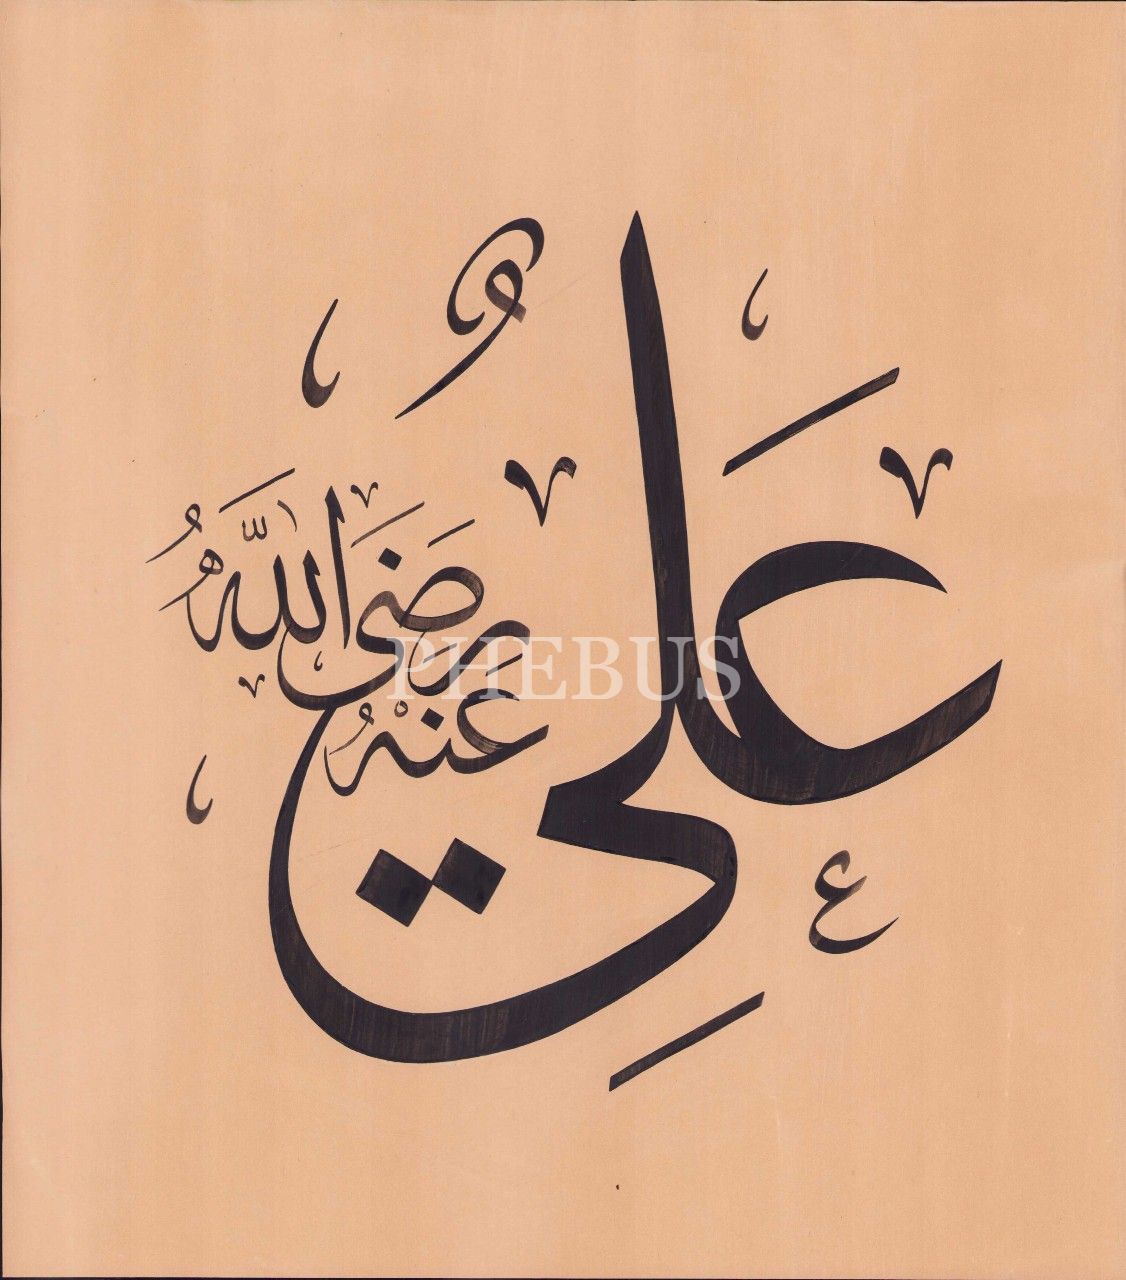 عَلِيٌّ
رَضِيَ اللّٰهُ
عَنْهُ
PHEBUS